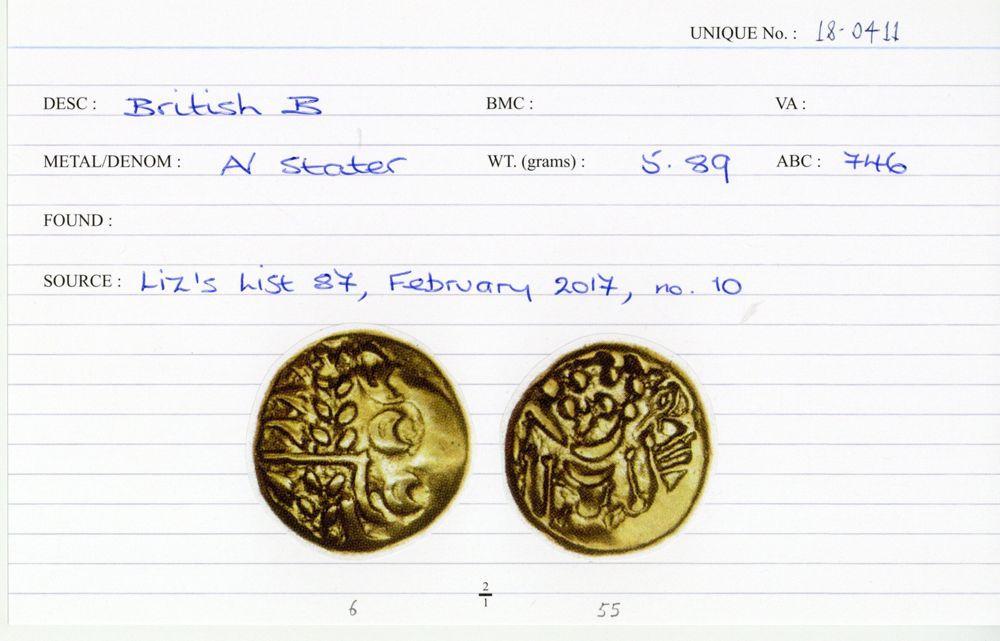 UNIQUE No. : 18-0411
DESC : British B BMC : VA :
METAL/DENOM : AV Stater WT. (grams) : 5.89 ABC : 746
FOUND :
SOURCE : Liz's List 87, February 2017, no. 10
2
1
6 55